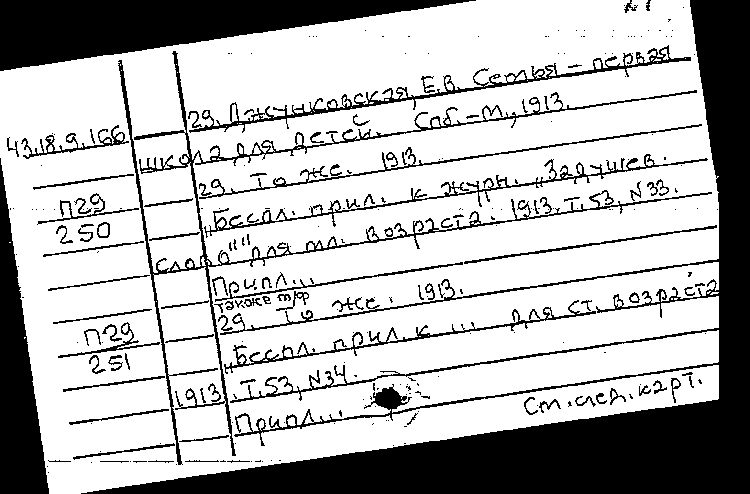 29. Джунковская, Е.В. Семья – первая
43.18.9.166
школа для детей. Спб.-М., 1913.
29. То же. 1913.
П29
250
„Беспл. прил. к журн. „Задушев.
слово"" для мл. возраста. 1913. Т.53, N33.
Припл...
также м/ф
29. То же. 1913.
П29
251
„Беспл. прил. к ... для ст. возраста
1913. Т.53, N34.
Припл...
См. след. карт.